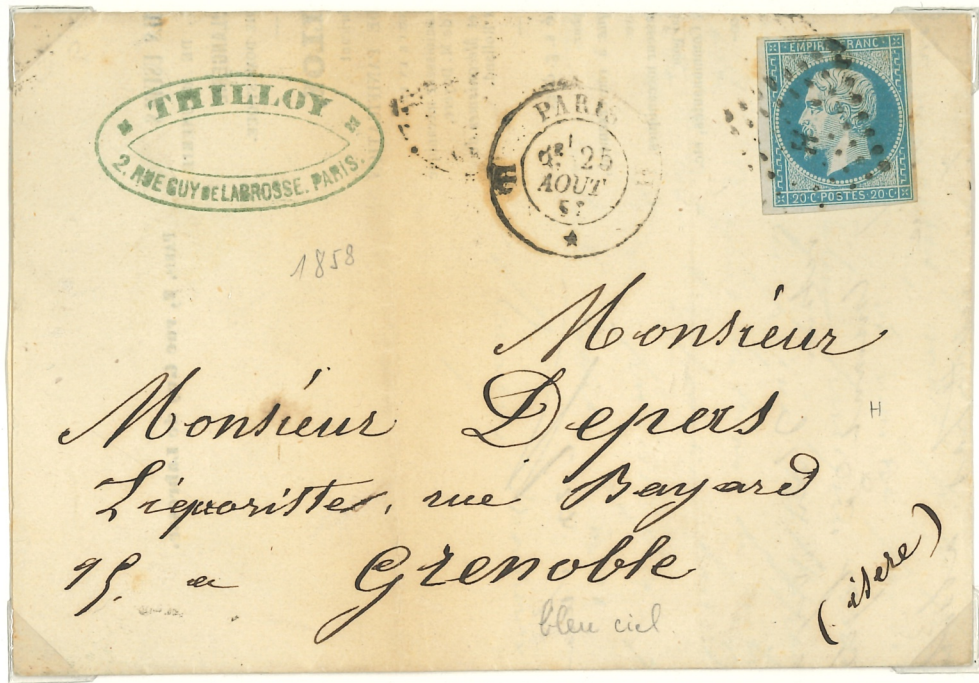 THILLOY
2. RUE GUY DE LABROSSE. PARIS.
PARIS
25
AOUT
EMPIRE FRANC
20·C·POSTES 20·C
1858
Monsieur
Monsieur Depers
H
Liquoriste, rue Bayard
à Grenoble
(isere)
bleu ciel